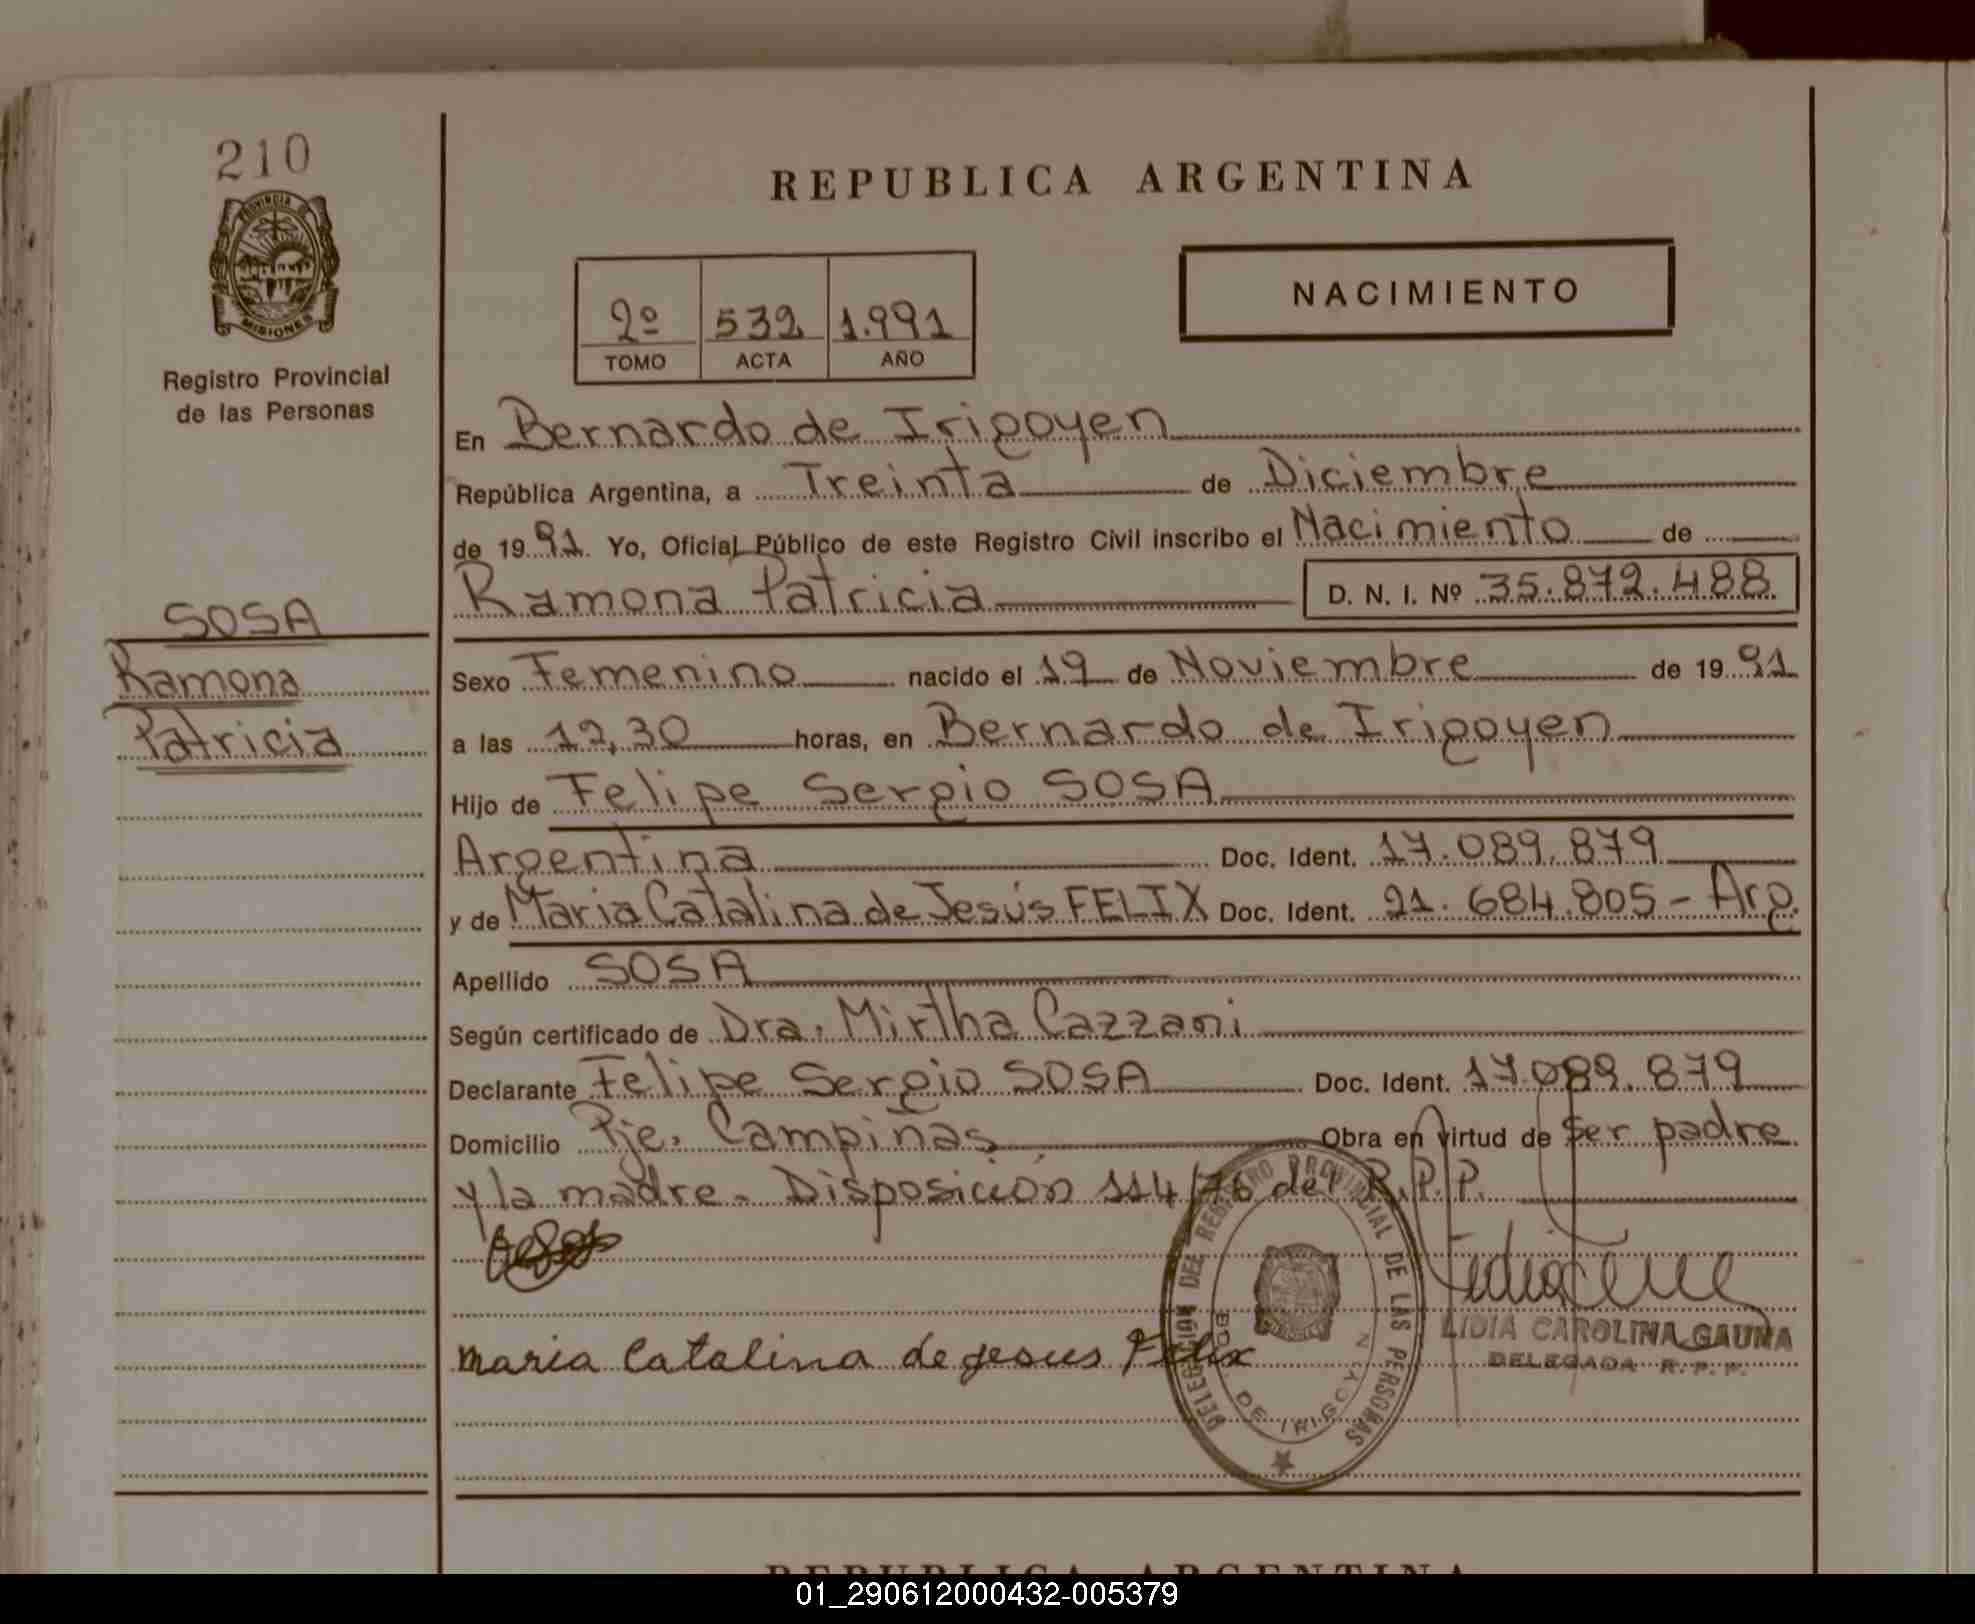 210
PROVINCIA DE
MISIONES
Registro Provincial
de las Personas
SOSA
Ramona
Patricia
REPUBLICA ARGENTINA
2º 532 1.991
TOMO ACTA AÑO
NACIMIENTO
En Bernardo de Irigoyen
República Argentina, a Treinta de Diciembre
de 1991. Yo, Oficial Público de este Registro Civil inscribo el Nacimiento de
Ramona Patricia D. N. I. Nº 35.872.488
Sexo Femenino nacido el 19 de Noviembre de 1991
a las 12,30 horas, en Bernardo de Irigoyen
Hijo de Felipe Sergio SOSA
Argentina Doc. Ident. 17.089.879
y de Maria Catalina de Jesús FELIX Doc. Ident. 21.684.805 - Arg.
Apellido SOSA
Según certificado de Dra. Mirtha Cazzani
Declarante Felipe Sergio SOSA Doc. Ident. 17.089.879
Domicilio Pje. Campiñas Obra en virtud de ser padre
y la madre. Disposición 114/76 del R.P.P.
maria Catalina de jesus Felix
DELEGACION DEL REGISTRO PROVINCIAL DE LAS PERSONAS
BDO. DE IRIGOYEN
LIDIA CAROLINA GAUNA
DELEGADA R. P. P.
REPUBLICA ARGENTINA
01_290612000432-005379